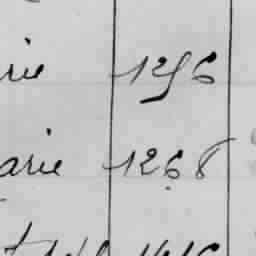 rie 1256
arie 1268